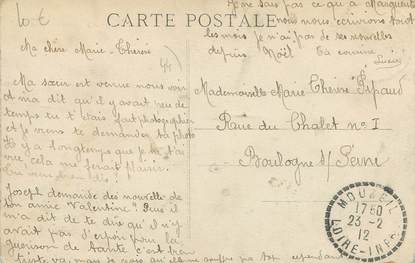 10 €
CARTE POSTALE
Je ne sais pas ce qu'a Marguerite
nous nous écrivions tous
les mois je n'ai pas de ses nouvelles
depuis Noël Ta cousine
Lucie
Ma chère Marie-Thérèse
Ma sœur est venue nous voir
et m'a dit qu'il y avait peu de
temps tu t'étais fait photographier
et je viens te demander ta photo
il y a longtemps que je ne t'ai
vue, cela me ferait plaisir.
Joseph demande des nouvelles de
son amie Valentine! Puis il
m'a dit de te dire qu'il n'y
avait pas d'espoir pour la
guérison de tante c'est bien
triste va, mais je crois qu'elle ne souffre pas trop cependant
Mademoiselle Marie Thérèse Pipaud
Rue du Chalet n° 1
Boulogne s/ Seine
MOUZEIL
17 50
23 - 2
12
LOIRE-INFRE